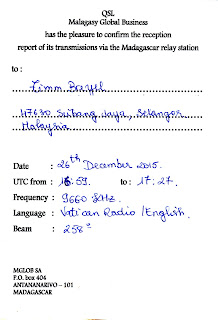 QSL
Malagasy Global Business
has the pleasure to confirm the reception
report of its transmissions via the Madagascar relay station
to :
Timm Breyel
47630 Subang Jaya, Selangor
Malaysia
Date : 26th December 2015.
UTC from : 16:59 to : 17:27
Frequency : 9660 kHz
Language : Vatican Radio / English
Beam : 258°
MGLOB SA
P.O. box 404
ANTANANARIVO – 101
MADAGASCAR